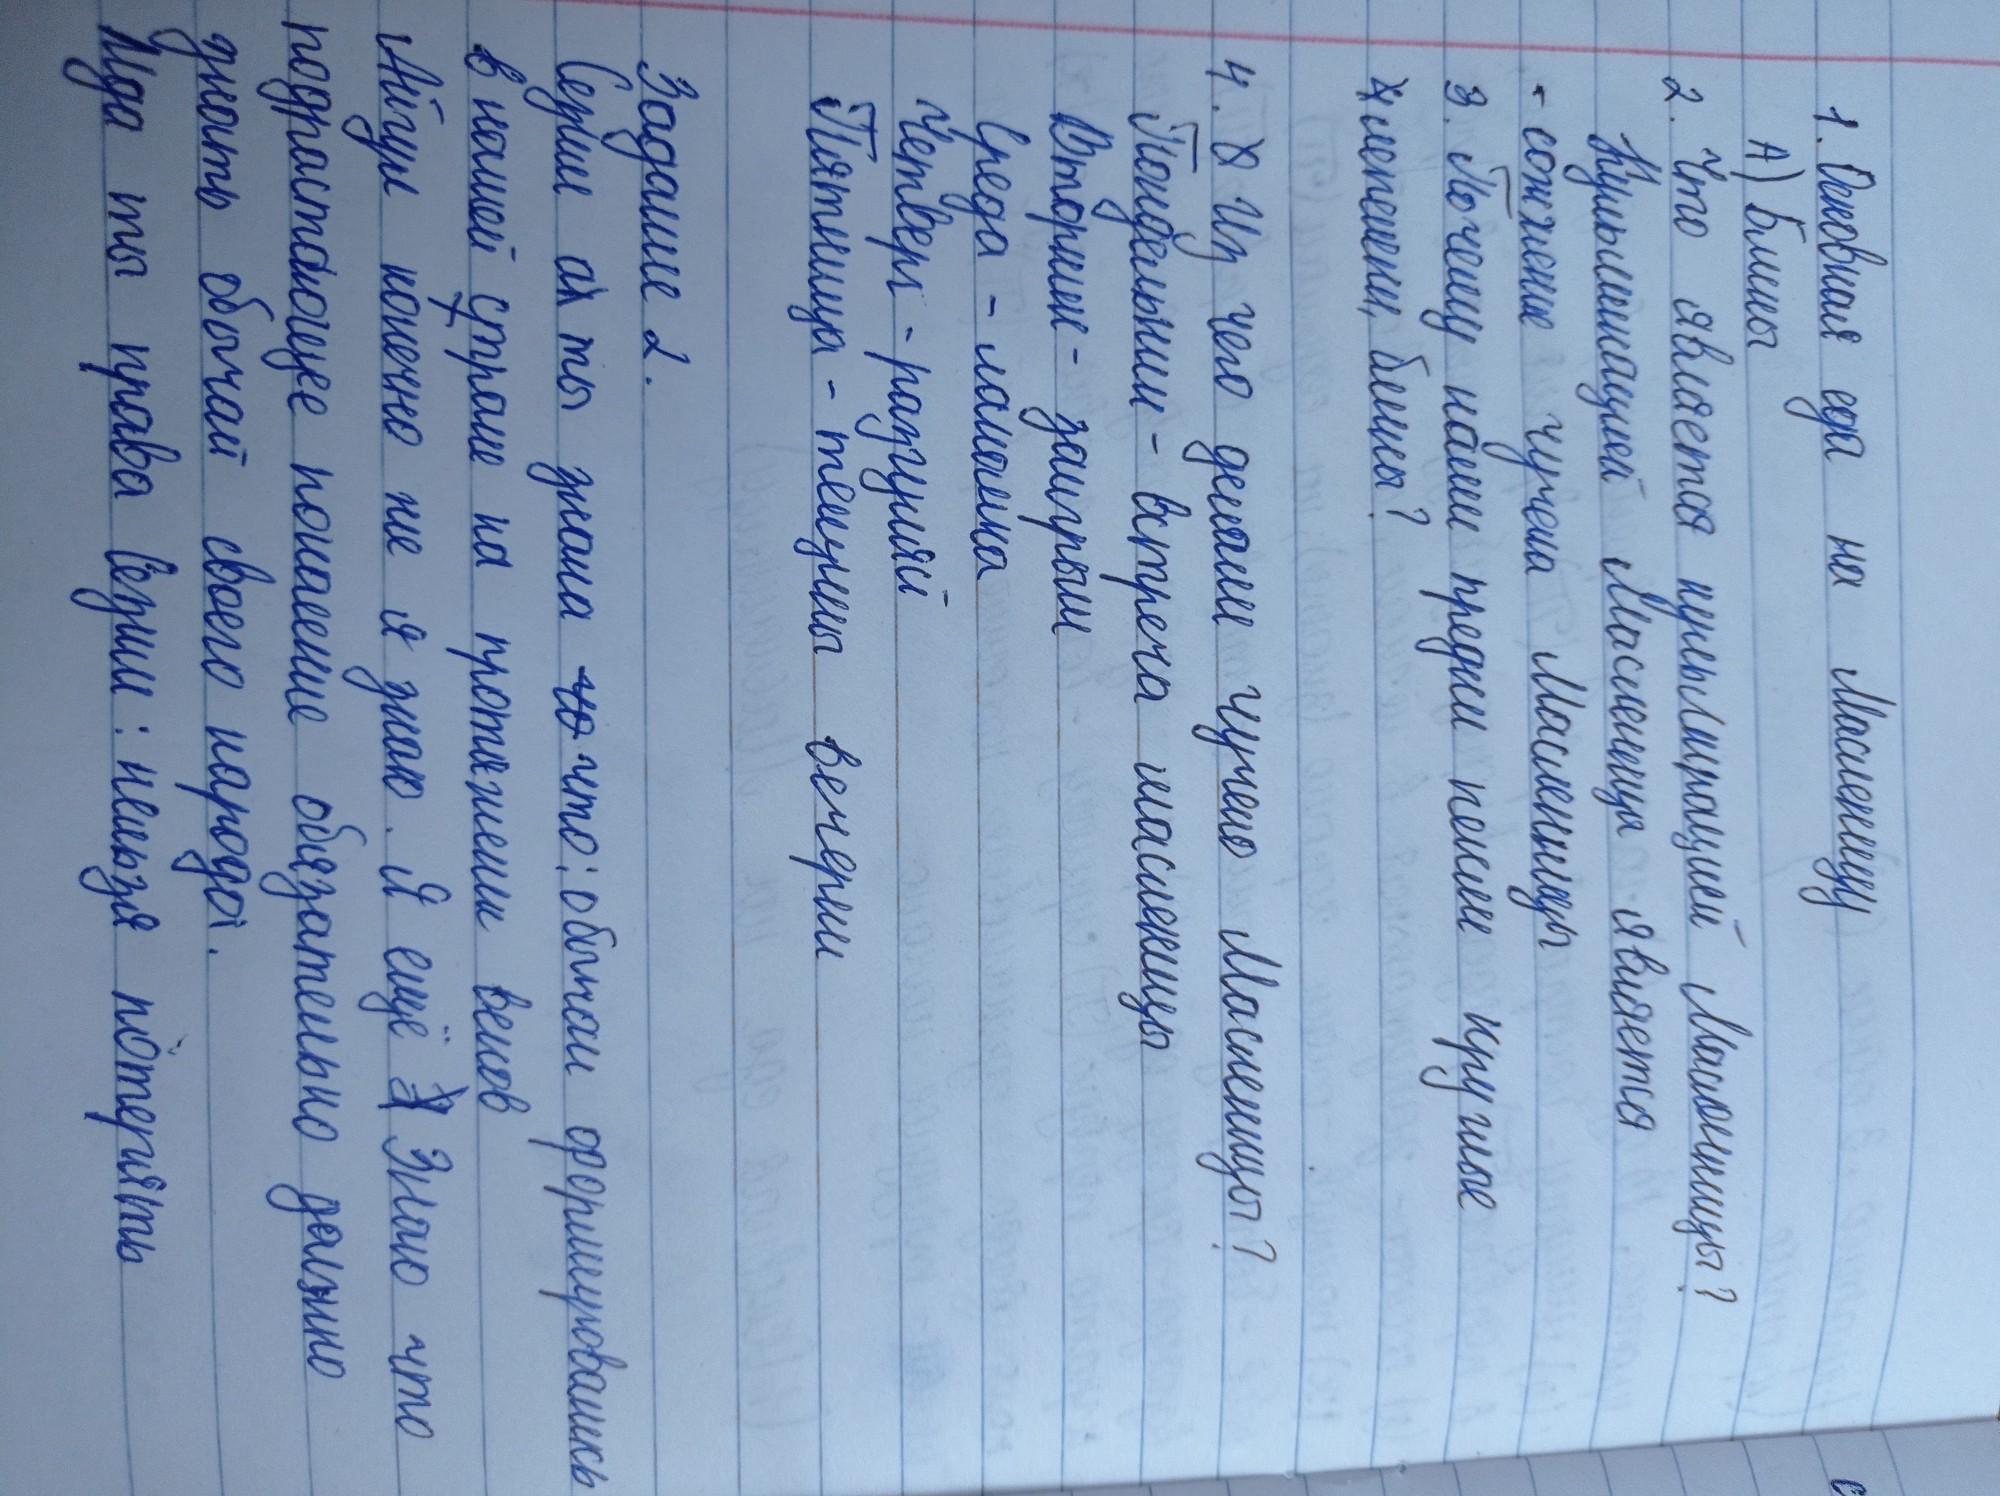 1. Осковная еда на Масленицу
А) Блины
2. Что является кульлирацией Масленницы?
Кульминацией Масленица является
- сожжение чучела Масленницы
3. Почему наши предки пекли круглые
лепешки, блины?
4. Из чего делали чучело Масленицы?
Понедельник - встреча масленицы
Вторник - заигрыш
Среда - лакомка
Четверг - разгуляй
Пятница - тещины вечерки
Задание 2.
Серик а ты знала что: обычаи формировались
в нашей стране на протяжении веков
Айгул конечно же я знаю. Я ещё знаю что
подрастающее поколение обязательно должно
знать обычай своего народа.
Мда ты права Серик: нельзя потерять